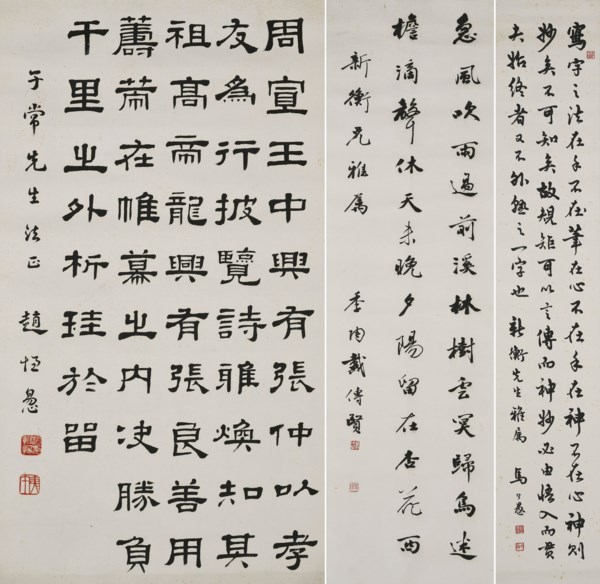 寫字之法在手不在筆在心不在手在神不在心神則
妙矣不可知矣故規矩可以言傳而神妙必由悟入而貫
夫始終者又不外熟之一字也 新衡先生雅屬 馬公愚
急風吹雨過前溪林樹雲冥歸鳥迷
檐滴聲休天未晚夕陽留在杏花西
新衡兄雅屬 季陶戴傳賢
周宣王中興有張仲以孝
友為行披覽詩雅煥知其
祖高帝龍興有張良善用
籌策在帷幕之內決勝負
千里之外析珪於留
午常先生法正 趙恒惕